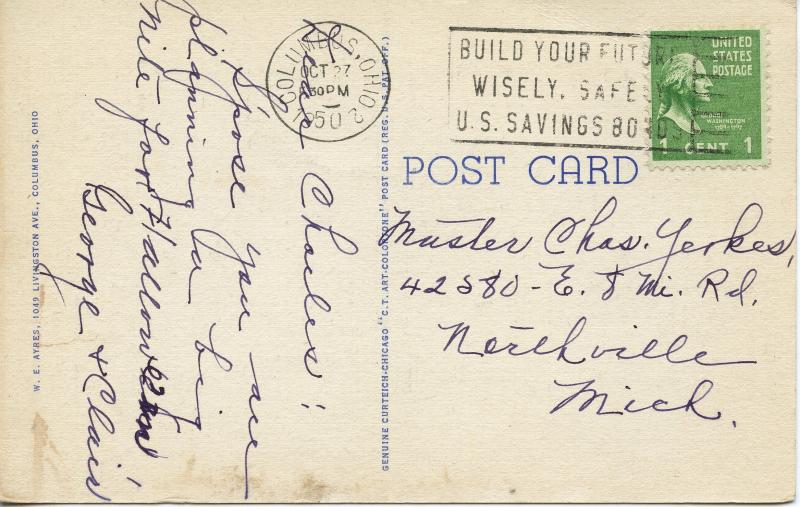 Dear Charles:
S'pose you are
planning for big
nite for Hallowe'en
George & Clair
W. E. AYRES, 1049 LIVINGSTON AVE., COLUMBUS, OHIO
GENUINE CURTEICH-CHICAGO "C.T. ART-COLORTONE" POST CARD (REG. U.S. PAT. OFF.)
COLUMBUS, OHIO 2
OCT 27
30 PM
1950
BUILD YOUR FUTURE
WISELY, SAFELY
U.S. SAVINGS BONDS
UNITED
STATES
POSTAGE
WASHINGTON
1 CENT 1
POST CARD
Master Chas. Yerkes,
42580 - E. 8 Mi. Rd.
Northville
Mich.